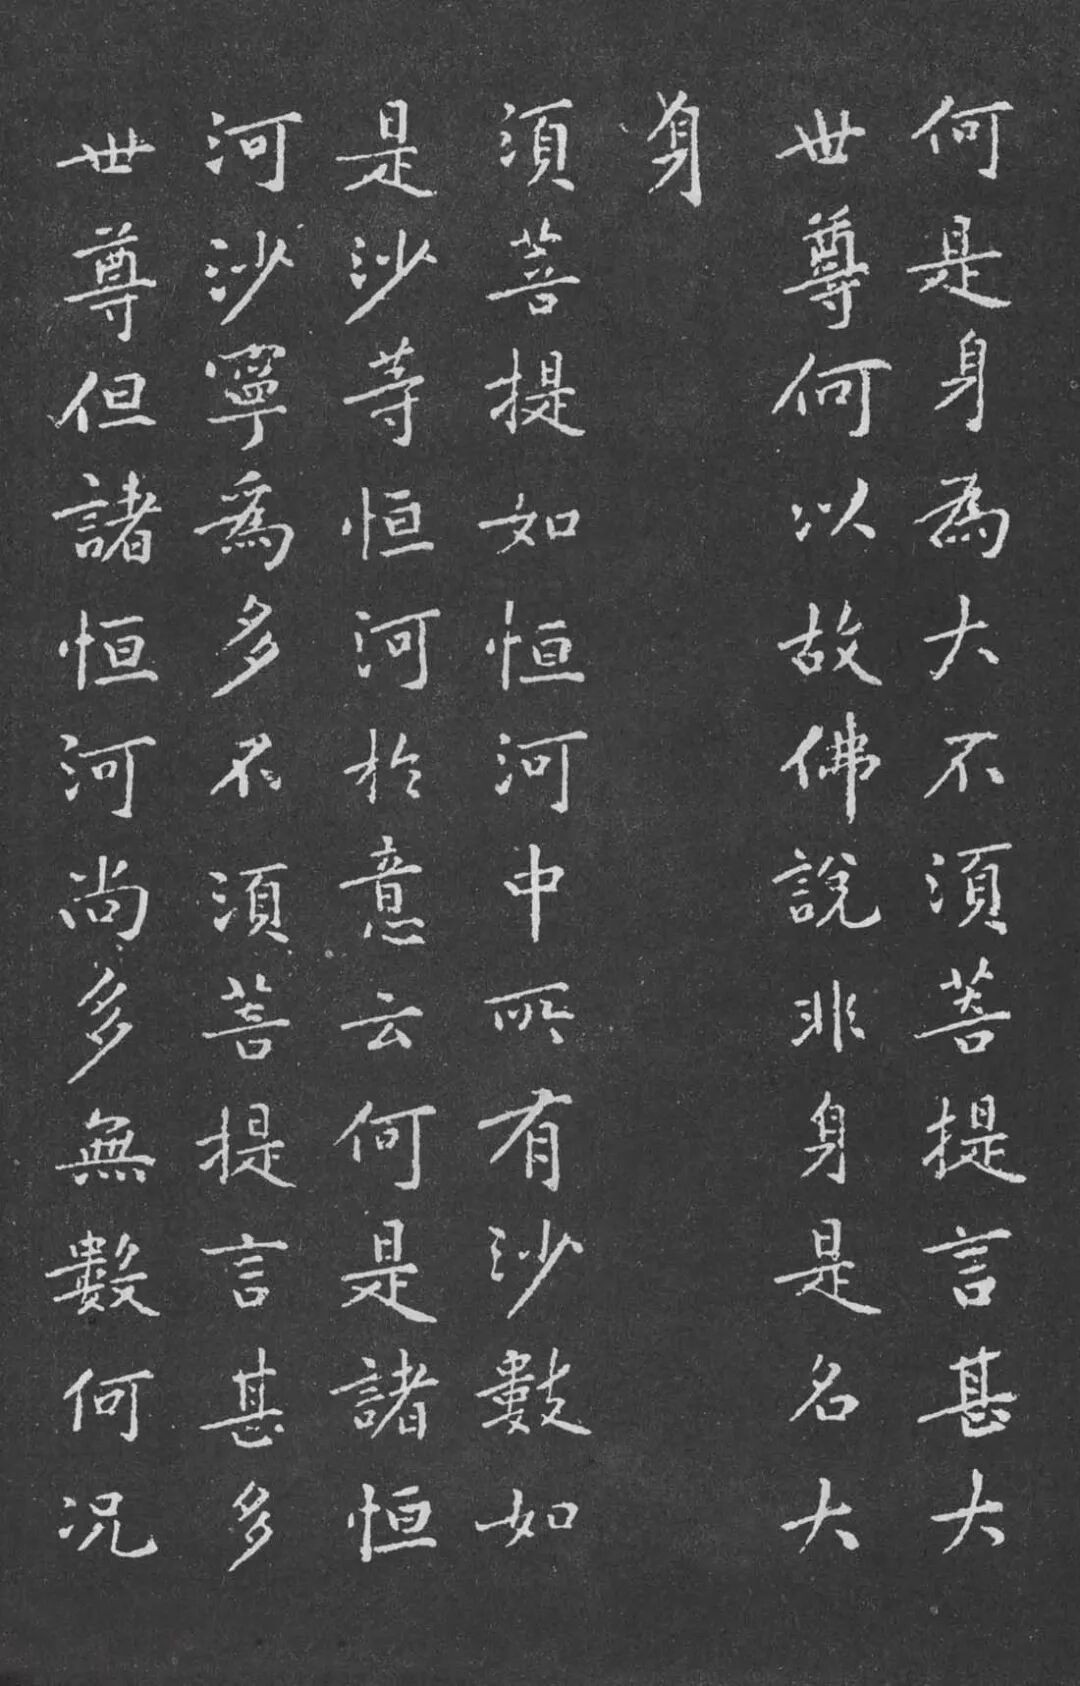 何是身為大不須菩提言甚大
世尊何以故佛說非身是名大
身
須菩提如恒河中所有沙數如
是沙等恒河於意云何是諸恒
河沙寧爲多不須菩提言甚多
世尊但諸恒河尚多無數何況